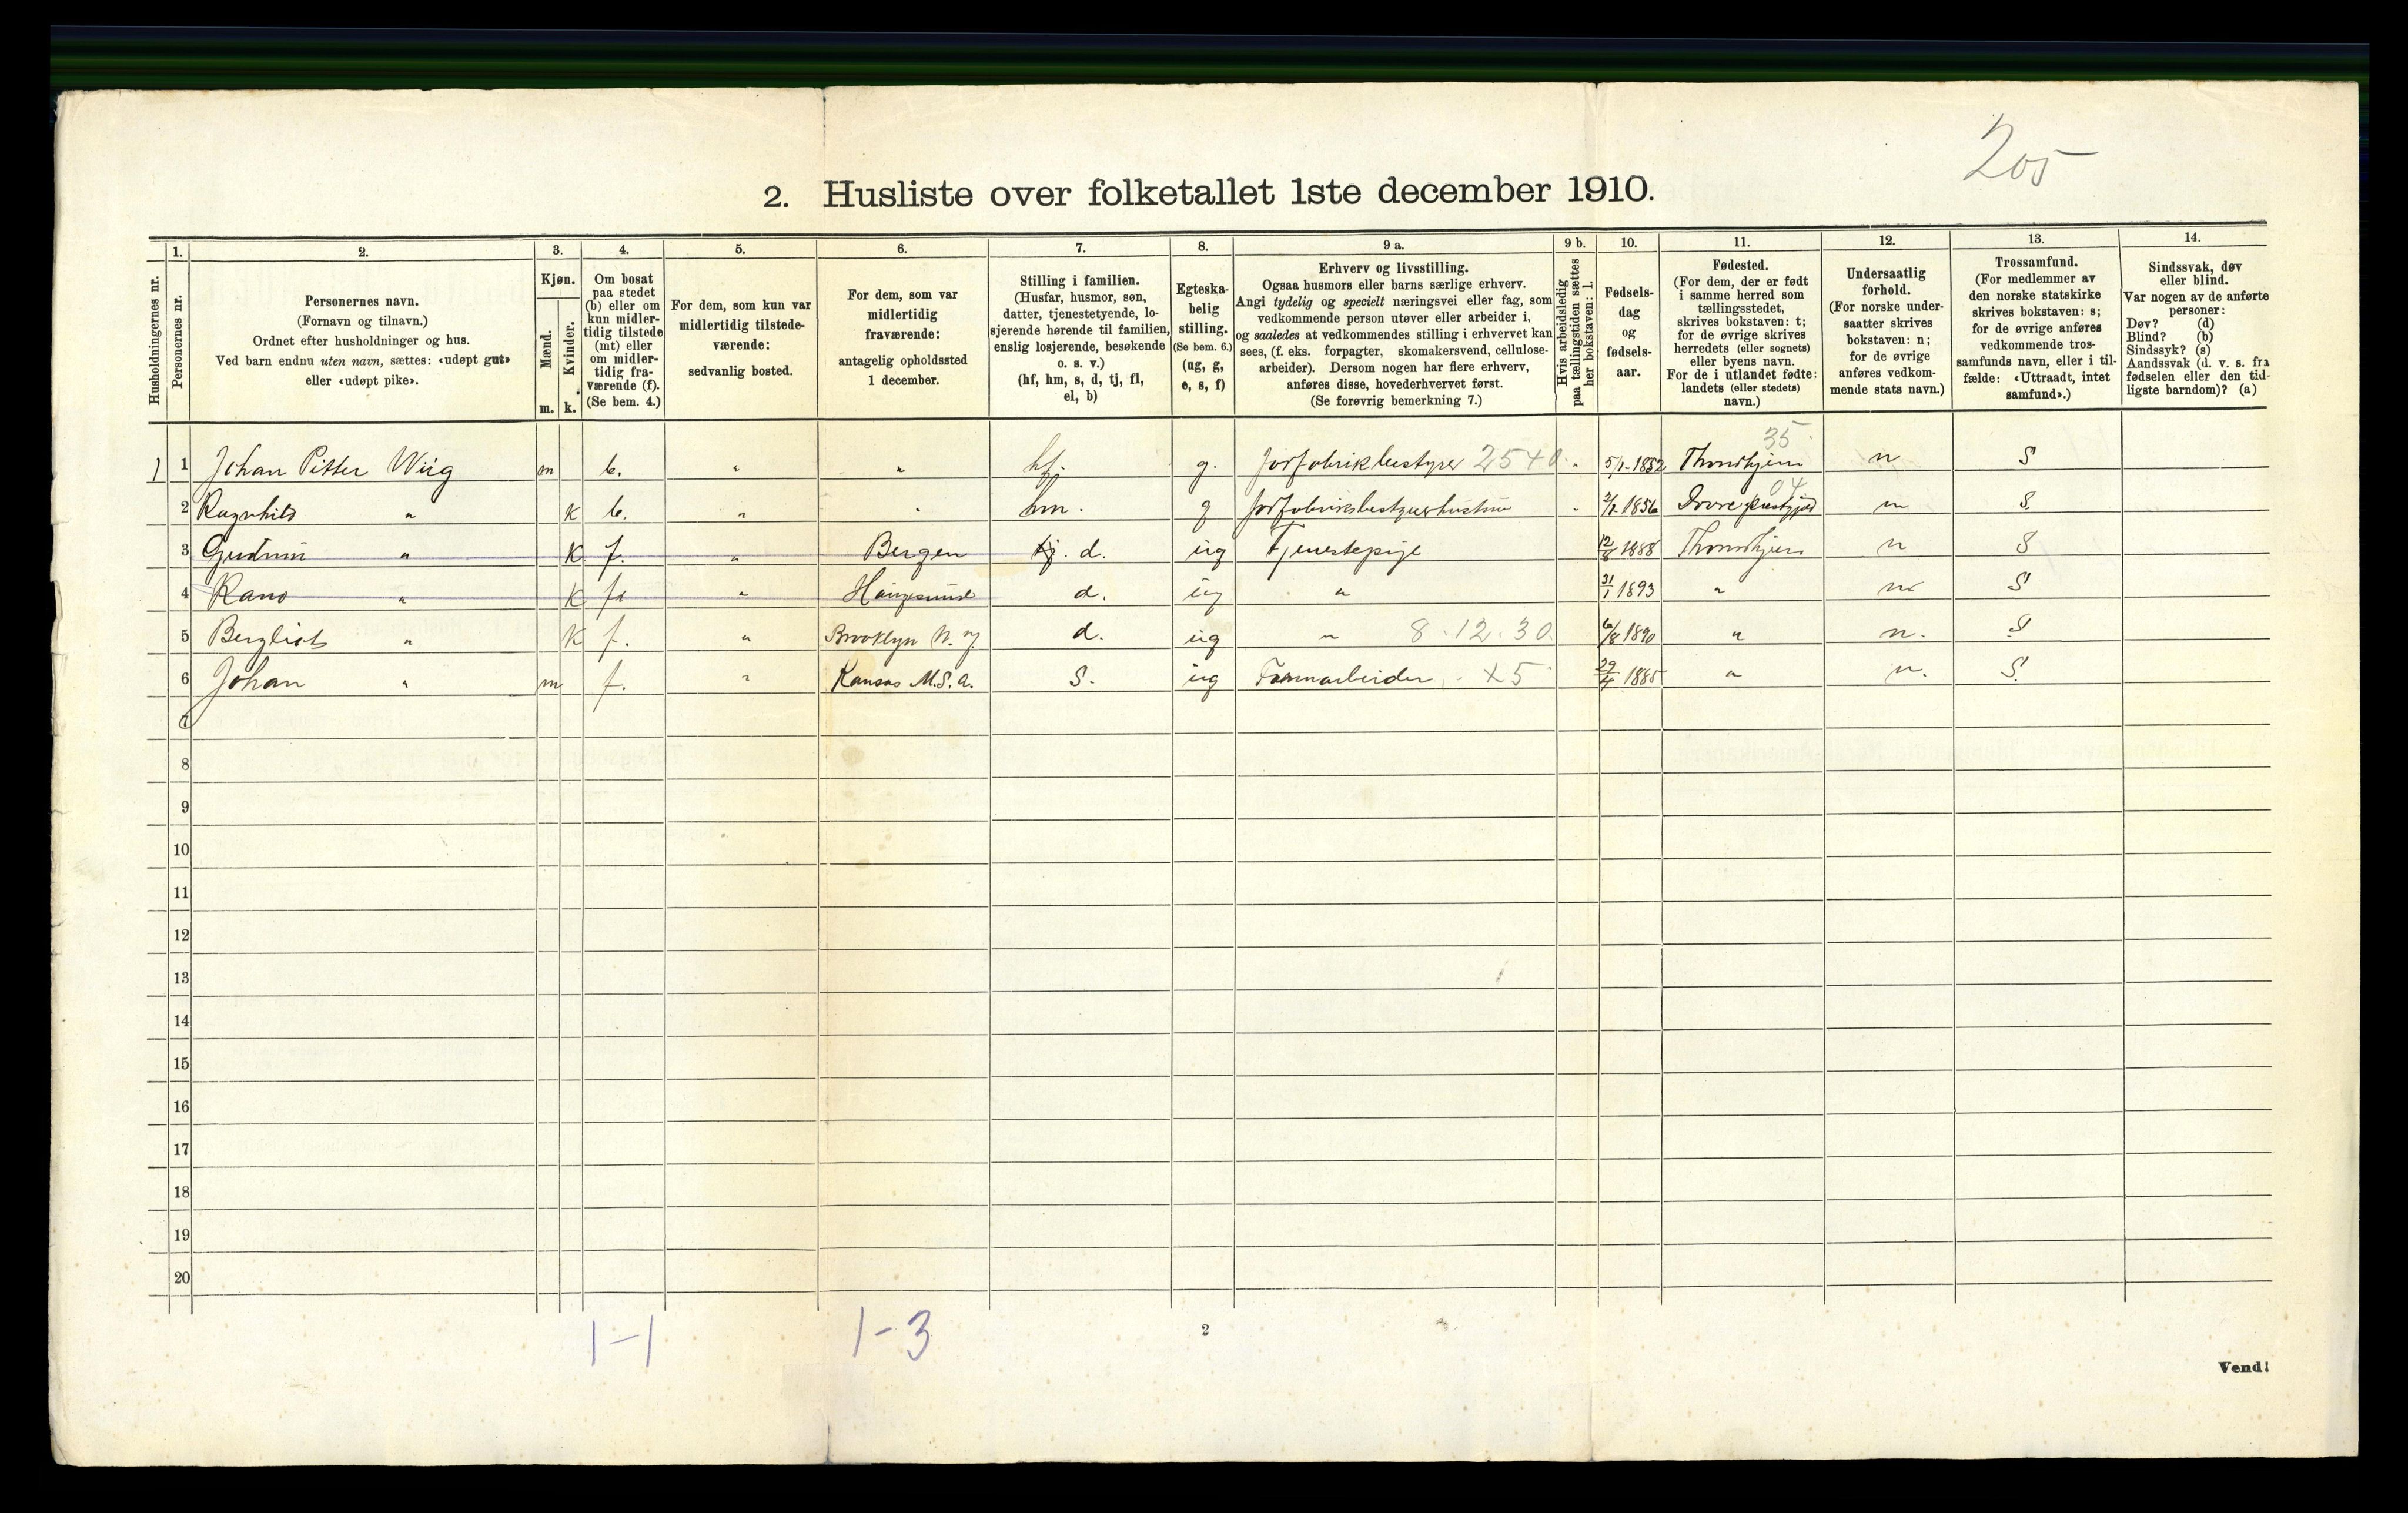 205
2. Husliste over folketallet 1ste december 1910.
Husholdningernes nr.
1. Personernes nr.
2. Personernes navn.
(Fornavn og tilnavn.)
Ordnet efter husholdninger og hus.
Ved barn endnu uten navn, sættes: «udøpt gut»
eller «udøpt pike».
3. Kjøn.
Mænd. m.
Kvinder. k.
4. Om bosat
paa stedet
(b) eller om
kun midler-
tidig tilstede
(mt) eller
om midler-
tidig fra-
værende (f).
(Se bem. 4.)
5. For dem, som kun var
midlertidig tilstede-
værende:
sedvanlig bosted.
6. For dem, som var
midlertidig
fraværende:
antagelig opholdssted
1 december.
7. Stilling i familien.
(Husfar, husmor, søn,
datter, tjenestetyende, lo-
sjerende hørende til familien,
enslig losjerende, besøkende
o. s. v.)
(hf, hm, s, d, tj, fl,
el, b)
8. Egteska-
belig
stilling.
(Se bem. 6.)
(ug, g,
e, s, f)
9 a. Erhverv og livsstilling.
Ogsaa husmors eller barns særlige erhverv.
Angi tydelig og specielt næringsvei eller fag, som
vedkommende person utøver eller arbeider i,
og saaledes at vedkommendes stilling i erhvervet kan
sees, (f. eks. forpagter, skomakersvend, cellulose-
arbeider). Dersom nogen har flere erhverv,
anføres disse, hovederhvervet først.
(Se forøvrig bemerkning 7.)
9 b. Hvis arbeidsledig
paa tællingstiden sættes
her bokstaven: l.
10. Fødsels-
dag
og
fødsels-
aar.
11. Fødested.
(For dem, der er født
i samme herred som
tællingsstedet,
skrives bokstaven: t;
for de øvrige skrives
herredets (eller sognets)
eller byens navn.
For de i utlandet fødte:
landets (eller stedets)
navn.)
12. Undersaatlig
forhold.
(For norske under-
saatter skrives
bokstaven: n;
for de øvrige
anføres vedkom-
mende stats navn.)
13. Trossamfund.
(For medlemmer av
den norske statskirke
skrives bokstaven: s;
for de øvrige anføres
vedkommende tros-
samfunds navn, eller i til-
fælde: «Uttraadt, intet
samfund».)
14. Sindssvak, døv
eller blind.
Var nogen av de anførte
personer:
Døv? (d)
Blind? (b)
Sindssyk? (s)
Aandssvak (d. v. s. fra
fødselen eller den tid-
ligste barndom)? (a)
35
1 1 Johan Pitter Wiig m b. " " hf. g. 2540. 5/1-1852 Throndhjem n S
04
2 Ragnhild " k b. " hm. g 1856 n S.
3 Gudrun " k f. " Bergen tj. d. ug Tjenestepige 12/8 1888 Throndhjem n S
4 " k f. " Haugesund d. ug " 31/1 1893 " n S
5 Bergliot " k f. " Brooklyn N. y. d. ug " 8.12.30. 6/8 1890 " n. S
6 Johan " m f. " Kansas U.S.a. S. ug Farmarbeider X5 29/4 1885 " n. S.
7
8
9
10
11
12
13
14
15
16
17
18
19
20
1-1 1-3
2
Vend!